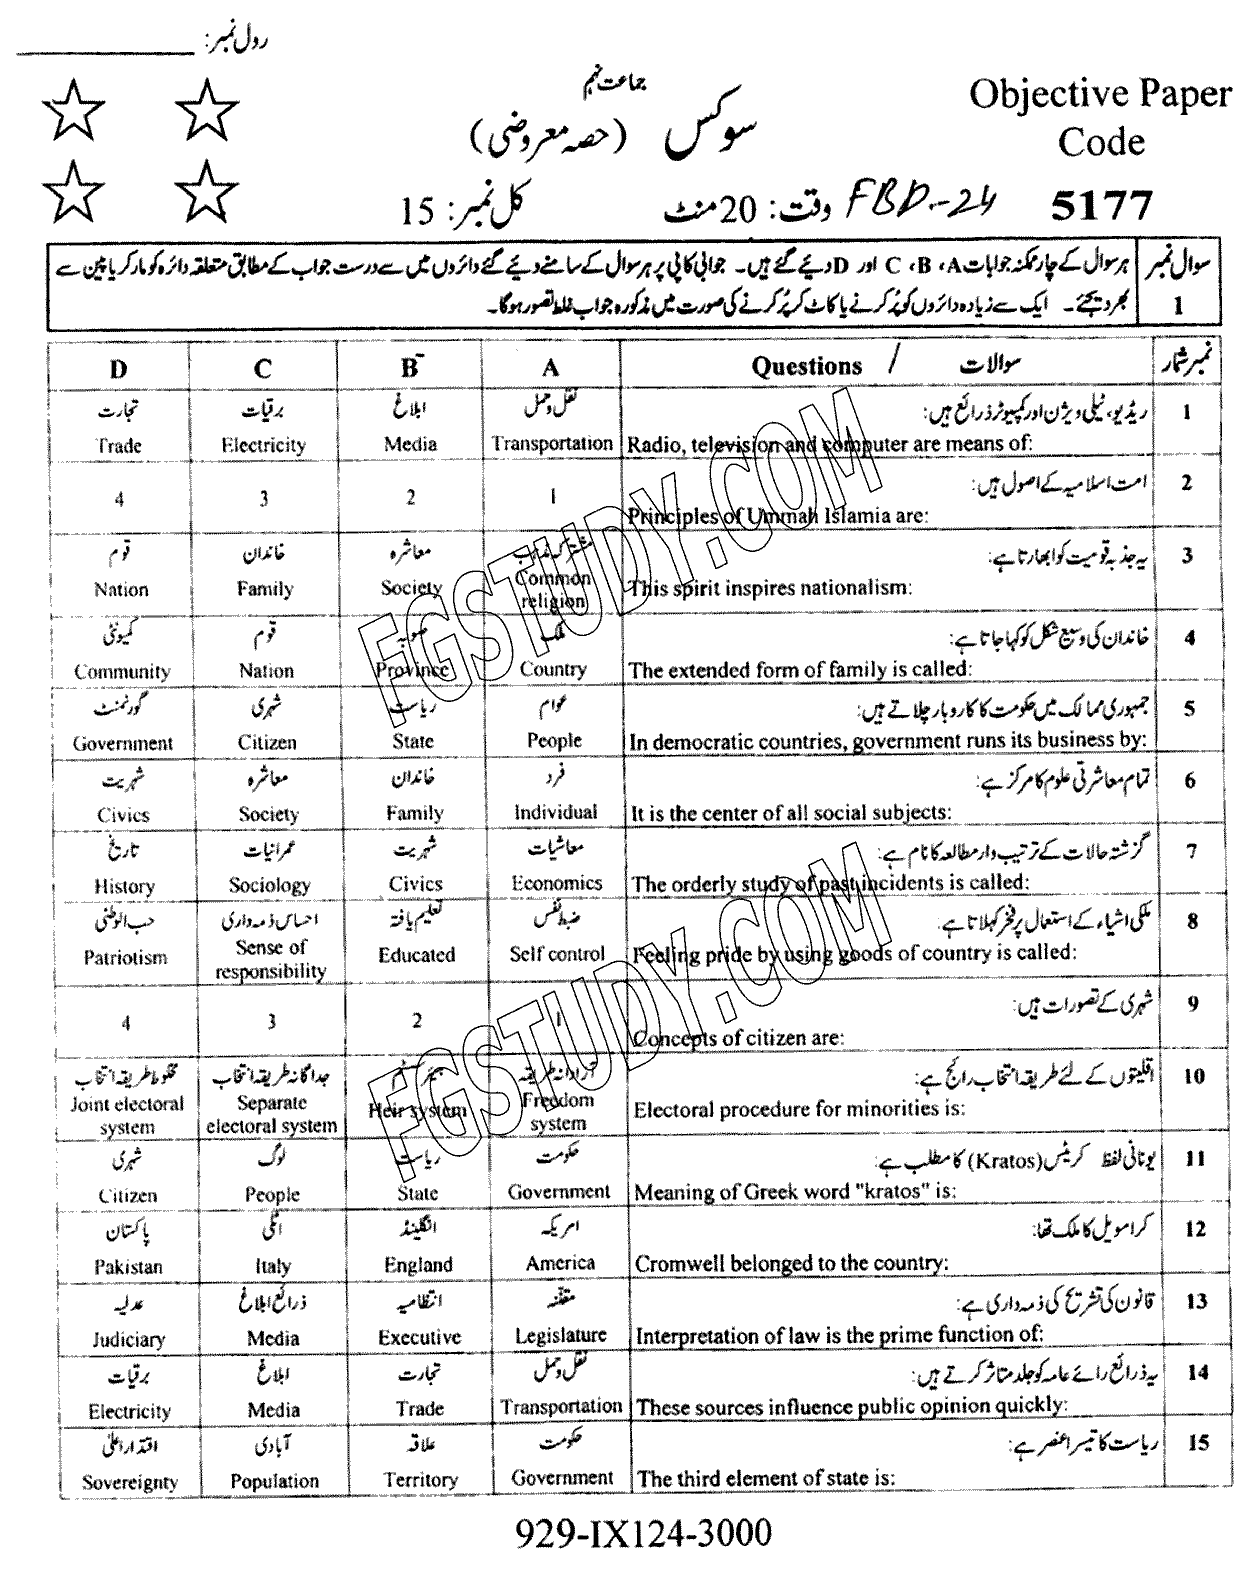 رول نمبر: ____________
جماعت نہم
Objective Paper
Code
5177
سوکس (حصہ معروضی)
وقت: 20 منٹ FBD-24
کل نمبر: 15
سوال نمبر 1
ہر سوال کے چار ممکنہ جوابات A، B، C اور D دیئے گئے ہیں۔ جوابی کاپی پر ہر سوال کے سامنے دیئے گئے دائروں میں سے درست جواب کے مطابق متعلقہ دائرہ کو مارکر یا پین سے
بھر دیجئے۔ ایک سے زیادہ دائروں کو پُر کرنے یا کاٹ کر پُر کرنے کی صورت میں مذکورہ جواب غلط تصور ہوگا۔
نمبر شمار سوالات / Questions A B C D
1 ریڈیو، ٹیلی ویژن اور کمپیوٹر ذرائع ہیں: نقل و حمل ابلاغ برقیات تجارت
Radio, television and computer are means of: Transportation Media Electricity Trade
2 امت اسلامیہ کے اصول ہیں: 1 2 3 4
Principles of Ummah Islamia are:
3 یہ جذبہ قومیت کو ابھارتا ہے: مشترکہ مذہب معاشرہ خاندان قوم
This spirit inspires nationalism: Common religion Society Family Nation
4 خاندان کی وسیع شکل کو کہا جاتا ہے: ملک صوبہ قوم کمیونٹی
The extended form of family is called: Country Province Nation Community
5 جمہوری ممالک میں حکومت کا کاروبار چلاتے ہیں: عوام ریاست شہری گورنمنٹ
In democratic countries, government runs its business by: People State Citizen Government
6 تمام معاشرتی علوم کا مرکز ہے: فرد خاندان معاشرہ شہریت
It is the center of all social subjects: Individual Family Society Civics
7 گزشتہ حالات کے ترتیب وار مطالعہ کا نام ہے: معاشیات شہریت عمرانیات تاریخ
The orderly study of past incidents is called: Economics Civics Sociology History
8 ملکی اشیاء کے استعمال پر فخر کہلاتا ہے: ضبط نفس تعلیم یافتہ احساس ذمہ داری حب الوطنی
Feeling pride by using goods of country is called: Self control Educated Sense of responsibility Patriotism
9 شہری کے تصورات ہیں: 1 2 3 4
Concepts of citizen are:
10 اقلیتوں کے لئے طریقہ انتخاب رائج ہے: آزادانہ طریقہ ہیئر سسٹم جداگانہ طریقہ انتخاب مخلوط طریقہ انتخاب
Electoral procedure for minorities is: Freedom system Heir system Separate electoral system Joint electoral system
11 یونانی لفظ کریٹس (Kratos) کا مطلب ہے: حکومت ریاست لوگ شہری
Meaning of Greek word "kratos" is: Government State People Citizen
12 کرامویل کا ملک تھا: امریکہ انگلینڈ اٹلی پاکستان
Cromwell belonged to the country: America England Italy Pakistan
13 قانون کی تشریح کی ذمہ داری ہے: مقننہ انتظامیہ ذرائع ابلاغ عدلیہ
Interpretation of law is the prime function of: Legislature Executive Media Judiciary
14 یہ ذرائع رائے عامہ کو جلد متاثر کرتے ہیں: نقل و حمل تجارت ابلاغ برقیات
These sources influence public opinion quickly: Transportation Trade Media Electricity
15 ریاست کا تیسرا عنصر ہے: حکومت علاقہ آبادی اقتدار اعلیٰ
The third element of state is: Government Territory Population Sovereignty
FGSTUDY.COM
FGSTUDY.COM
929-IX124-3000